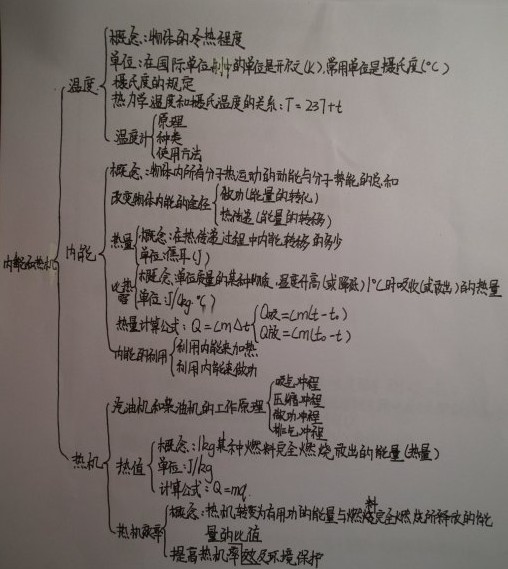 概念:物体的冷热程度
单位:在国际单位制中的单位是开尔文(K),常用单位是摄氏度(°C)
温度
摄氏度的规定
热力学温度和摄氏温度的关系:T=237+t
原理
温度计
种类
使用方法
概念:物体内所有分子热运动的动能与分子势能的总和
改变物体内能的途径
做功(能量的转化)
热传递(能量的转移)
内能
热量
概念:在热传递过程中内能转移的多少
单位:焦耳(J)
内能和热机
比热容
概念:单位质量的某种物质,温度升高(或降低)1°C时吸收(或放出)的热量
单位:J/(kg·°C)
热量计算公式:Q=cmΔt
Q吸=cm(t-t₀)
Q放=cm(t₀-t)
内能的利用
利用内能来加热
利用内能来做功
汽油机和柴油机的工作原理
吸气冲程
压缩冲程
做功冲程
排气冲程
热机
热值
概念:1kg某种燃料完全燃烧放出的能量(热量)
单位:J/kg
计算公式:Q=mq
热机效率
概念:热机转变为有用功的能量与燃料完全燃烧所释放的能
量的比值
提高热机率效及环境保护